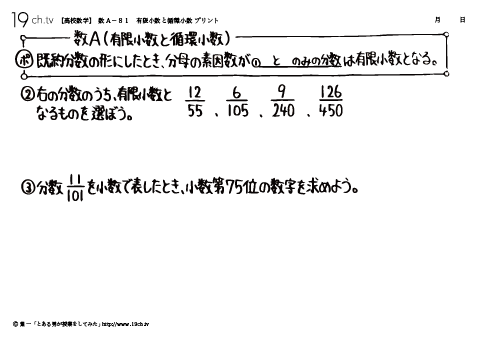 19ch.tv 【高校数学】 数A-81 有限小数と循環小数 プリント 月 日
数A(有限小数と循環小数)
ポ 既約分数の形にしたとき、分母の素因数が① と のみの分数は有限小数となる。
②右の分数のうち、有限小数と 12/55 、 6/105 、 9/240 、 126/450
なるものを選ぼう。
③分数 11/101 を小数で表したとき、小数第75位の数字を求めよう。
© 葉一「とある男が授業をしてみた」http://www.19ch.tv